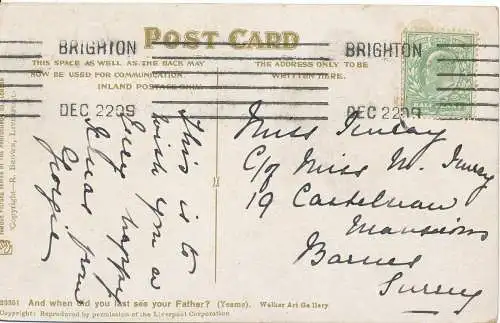 POST CARD
BRIGHTON
BRIGHTON
THIS SPACE AS WELL AS THE BACK MAY
NOW BE USED FOR COMMUNICATION
INLAND POSTAGE ONLY
THE ADDRESS ONLY TO BE
WRITTEN HERE.
DEC 22 09
DEC 22 09
This is to
wish you a
Every happy
Xmas from
Georgie
Miss
C/o Miss M.
19 Castelnau
Mansions
Barnes
Surrey
And when did you last see your Father? (Yeames). Walker Art Gallery
Copyright: Reproduced by permission of the Liverpool Corporation